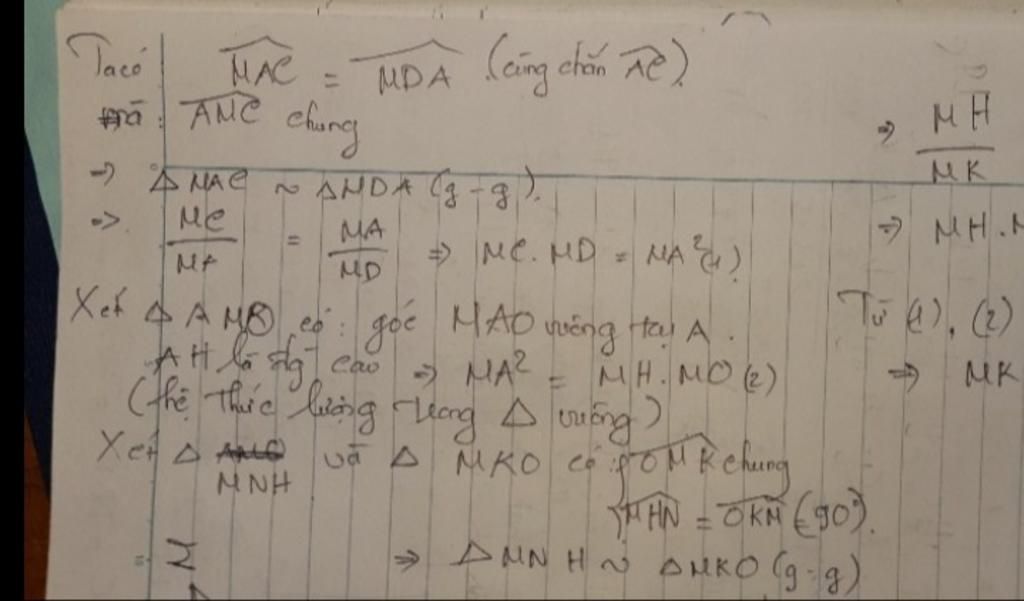 Ta có MAC = MDA (cùng chắn AC).
mà: AMC chung
=> Δ MAC ~ Δ MDA (g-g).
=> MC/MA = MA/MD => MC.MD = MA²(1)
Xét Δ AMO có: góc MAO vuông tại A.
AH là đg cao => MA² = MH.MO (2)
(hệ thức lượng trong Δ vuông)
Xét Δ MNH và Δ MKO có: OMK chung
MHN = OKM (=90°).
=> Δ MNH ~ Δ MKO (g-g)
=> MH/MK
=> MH.M
Từ (1), (2)
=> MK